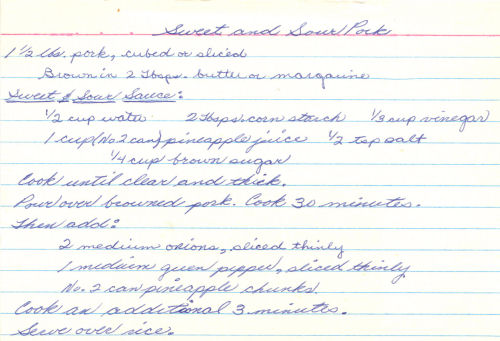 Sweet and Sour Pork
1 1/2 lbs. pork, cubed or sliced
Brown in 2 Tbsps. butter or margarine
Sweet & Sour Sauce:
1/2 cup water 2 Tbsps. corn starch 1/3 cup vinegar
1 cup (No 2 can) pineapple juice 1/2 tsp salt
1/4 cup brown sugar
Cook until clear and thick.
Pour over browned pork. Cook 30 minutes.
Then add:
2 medium onions, sliced thinly
1 medium green pepper, sliced thinly
No. 2 can pineapple chunks
Cook an additional 3 minutes.
Serve over rice.